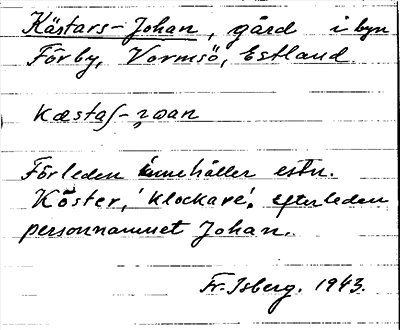 Kästars-Johan, gård i byn
Förby, Vormsö, Estland
kæstaʃ-ʒoan
Förleden innehåller estn.
Köster, 'klockare'. Efterleden
personnamnet Johan.
Fr. Isberg. 1943.